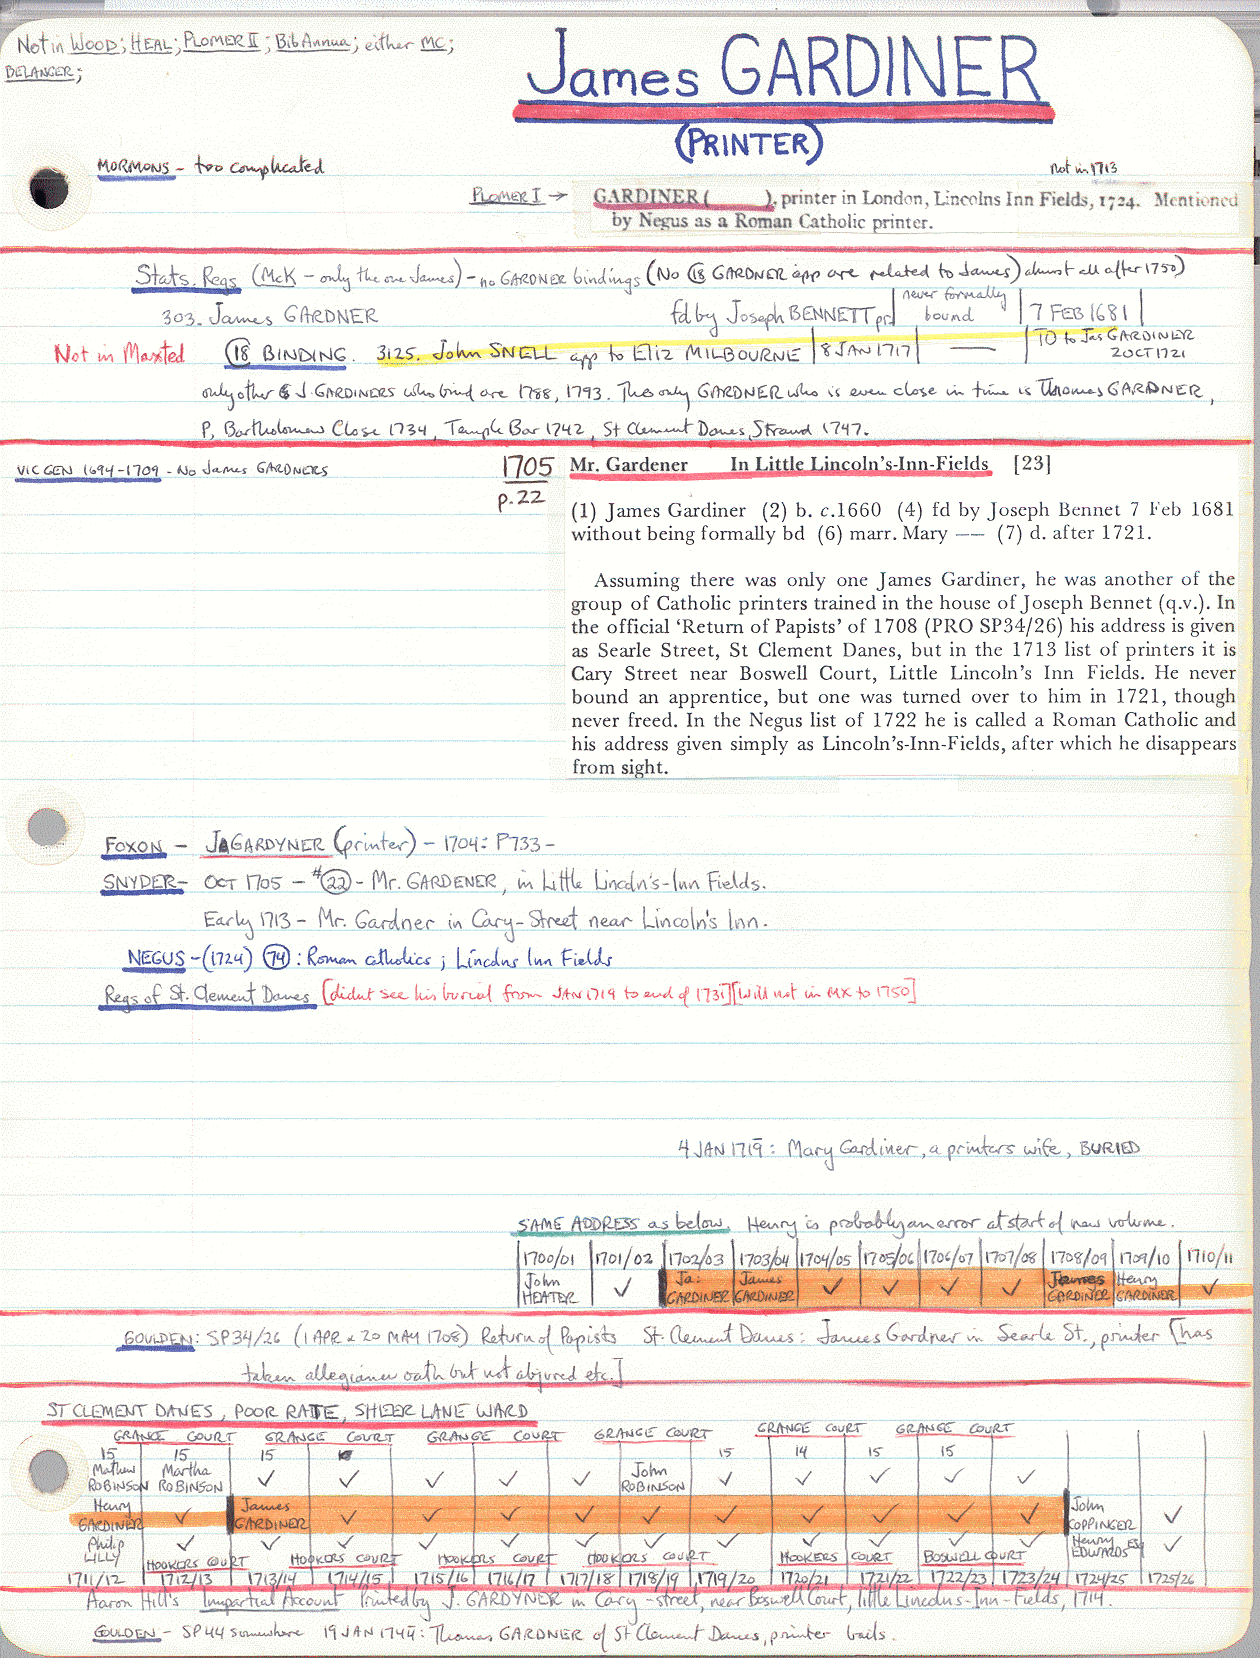 Not in WOOD; HEAL; PLOMER II; Bib Annua; either MC;
BELANGER;
James GARDINER
(PRINTER)
MORMONS - too complicated
not in 1713
PLOMER I → GARDINER ( ), printer in London, Lincolns Inn Fields, 1724. Mentioned
by Negus as a Roman Catholic printer.
Stats. Regs (McK - only the one James) - no GARDNER bindings (No 18 GARDNER app are related to James) almost all after 1750)
303. James GARDNER fd by Joseph BENNETT pr. | never formally bound | 7 FEB 1681 |
Not in Maxted 18 BINDING. 3125. John SNELL app to Eliz MILBOURNE | 8 JAN 1717 | — | TO to Jas GARDINER 2 OCT 1721
only other J. GARDINERS who bind are 1788, 1793. The only GARDNER who is even close in time is Thomas GARDNER,
P, Bartholomew Close 1734, Temple Bar 1742, St Clement Danes, Strand 1747.
VIC GEN 1694-1709 - No James GARDNERS
1705
p.22
Mr. Gardener In Little Lincoln's-Inn-Fields [23]
(1) James Gardiner (2) b. c.1660 (4) fd by Joseph Bennet 7 Feb 1681
without being formally bd (6) marr. Mary —— (7) d. after 1721.
Assuming there was only one James Gardiner, he was another of the
group of Catholic printers trained in the house of Joseph Bennet (q.v.). In
the official ‘Return of Papists’ of 1708 (PRO SP34/26) his address is given
as Searle Street, St Clement Danes, but in the 1713 list of printers it is
Cary Street near Boswell Court, Little Lincoln's Inn Fields. He never
bound an apprentice, but one was turned over to him in 1721, though
never freed. In the Negus list of 1722 he is called a Roman Catholic and
his address given simply as Lincoln's-Inn-Fields, after which he disappears
from sight.
FOXON - JA GARDYNER (printer) - 1704: P733 -
SNYDER - OCT 1705 - #22 - Mr. GARDENER, in Little Lincoln's-Inn Fields.
Early 1713 - Mr. Gardner in Cary-Street near Lincoln's Inn.
NEGUS - (1724) 74 : Roman catholics ; Lincolns Inn Fields
Regs of St. Clement Danes [didnt see his burial from JAN 1719 to end of 1731] [Will not in MX to 1750]
4 JAN 1719: Mary Gardiner, a printers wife, BURIED
SAME ADDRESS as below. Henry is probably an error at start of new volume.
1700/01 1701/02 1702/03 1703/04 1704/05 1705/06 1706/07 1707/08 1708/09 1709/10 1710/11
John HEATER ✓ Ja: GARDINER James GARDINER ✓ ✓ ✓ ✓ James GARDINER Henry GARDINER ✓
GOULDEN: SP34/26 (1 APR & 20 MAY 1708) Return of Papists St. Clement Danes: James Gardner in Searle St., printer [has
taken allegiance oath but not abjured etc.]
ST CLEMENT DANES, POOR RATE, SHEER LANE WARD
GRANGE COURT GRANGE COURT GRANGE COURT GRANGE COURT GRANGE COURT GRANGE COURT
15 15 15 15 14 15 15
Mathew ROBINSON Martha ROBINSON ✓ ✓ ✓ ✓ ✓ John ROBINSON ✓ ✓ ✓ ✓ ✓
Henry GARDINER ✓ James GARDINER ✓ ✓ ✓ ✓ ✓ ✓ ✓ ✓ ✓ ✓ John COPPINGER ✓
Philip LILLY ✓ ✓ ✓ ✓ ✓ ✓ ✓ ✓ ✓ ✓ ✓ ✓ Henry EDWARDS Es ✓
HOOKERS COURT HOOKERS COURT HOOKERS COURT HOOKERS COURT HOOKERS COURT BOSWELL COURT
1711/12 1712/13 1713/14 1714/15 1715/16 1716/17 1717/18 1718/19 1719/20 1720/21 1721/22 1722/23 1723/24 1724/25 1725/26
Aaron Hill's Impartial Account Printed by J. GARDYNER in Cary-street, near Boswell Court, little Lincolns-Inn-Fields, 1714.
GOULDEN - SP44 somewhere 19 JAN 1744: Thomas GARDNER of St Clement Danes, printer bails.